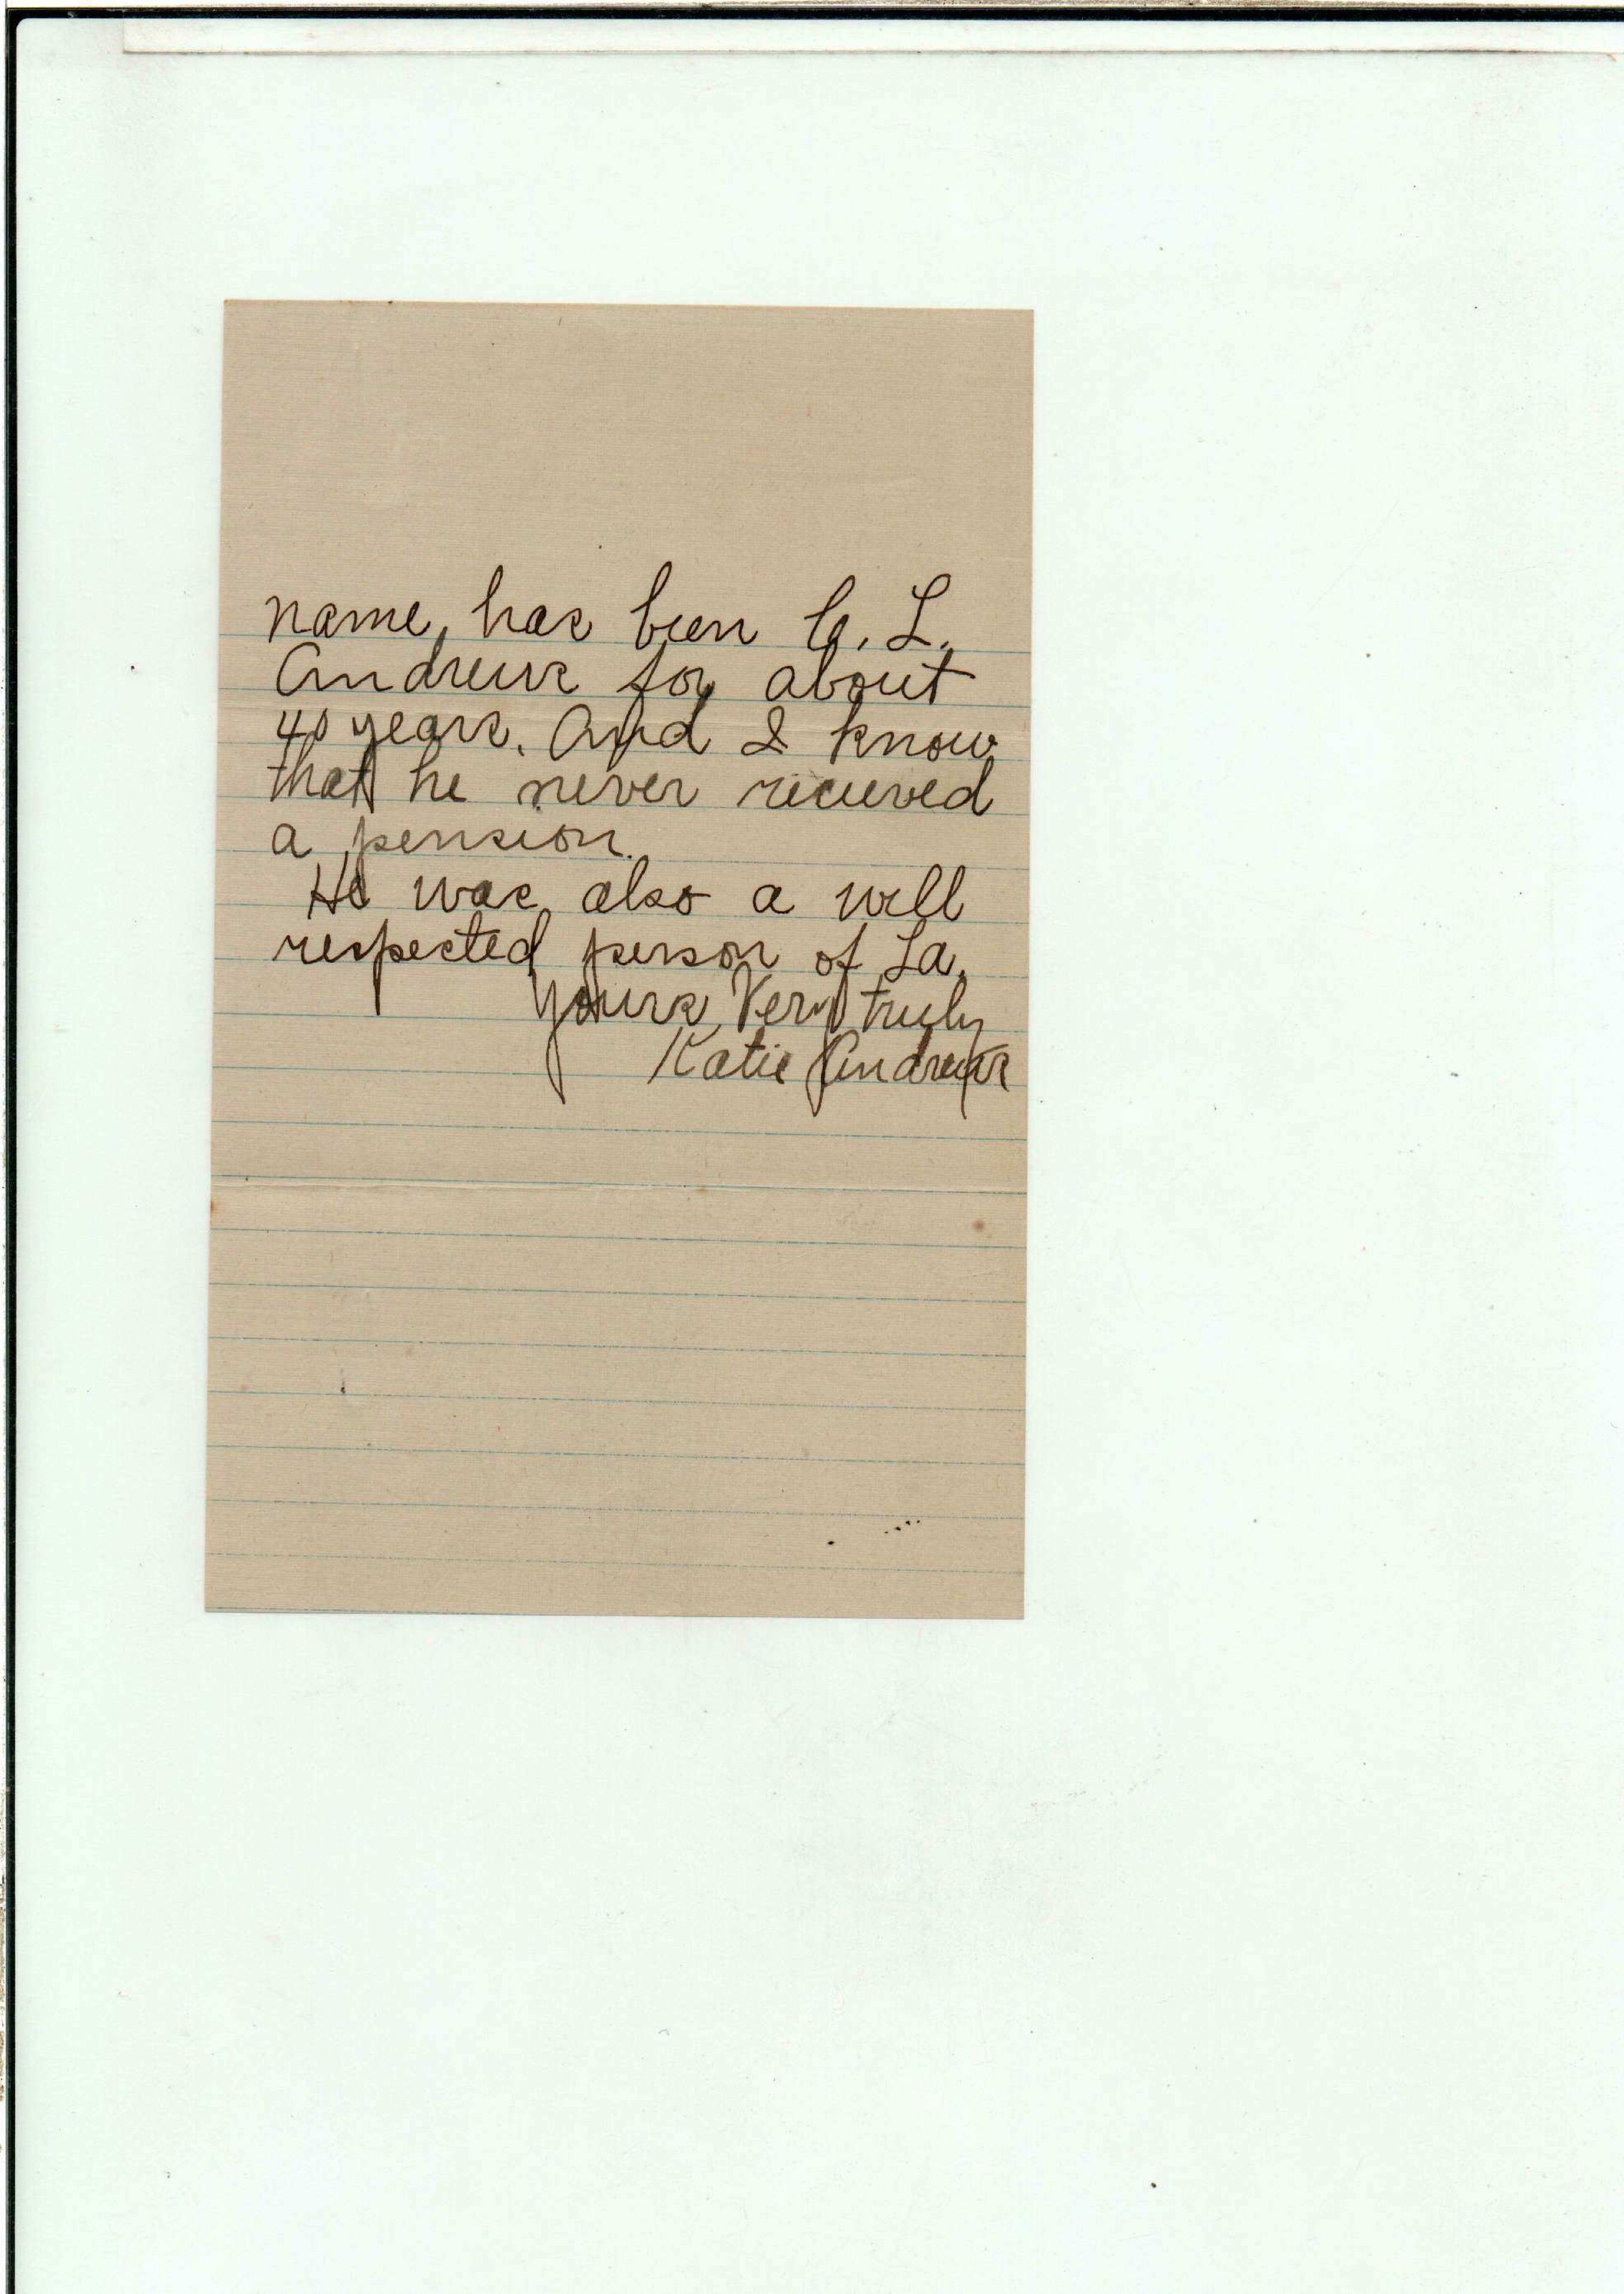 name, has been C. L.
Andrews for about
40 years. And I know
that he never recieved
a pension.
He was also a well
respected person of La.
Yours Very truly
Katie Andrews